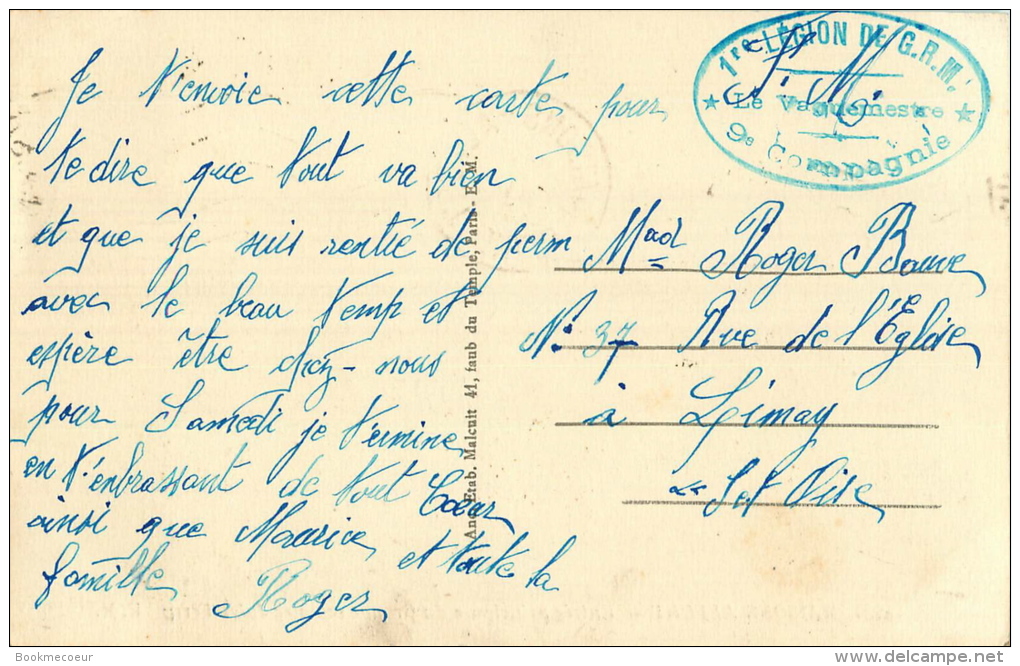 Je t'envoie cette carte pour
te dire que tout va bien
et que je suis rentré de perm
avec le beau temp et
espère être chez-nous
pour Samedi je termine
en t'enbrassant de tout Cœur
ainsi que Maurice et toute la
famille Roger
F. M.
1re LÉGION DE G.R.M.
★ Le Vaguemestre ★
9e Compagnie
Mad Roger
N° 37 Rue de l'Eglise
à Limay
Set Oise
Anc. Etab. Malcuit 41, faub du Temple, Paris-
Bookmecoeur
www.delcampe.net